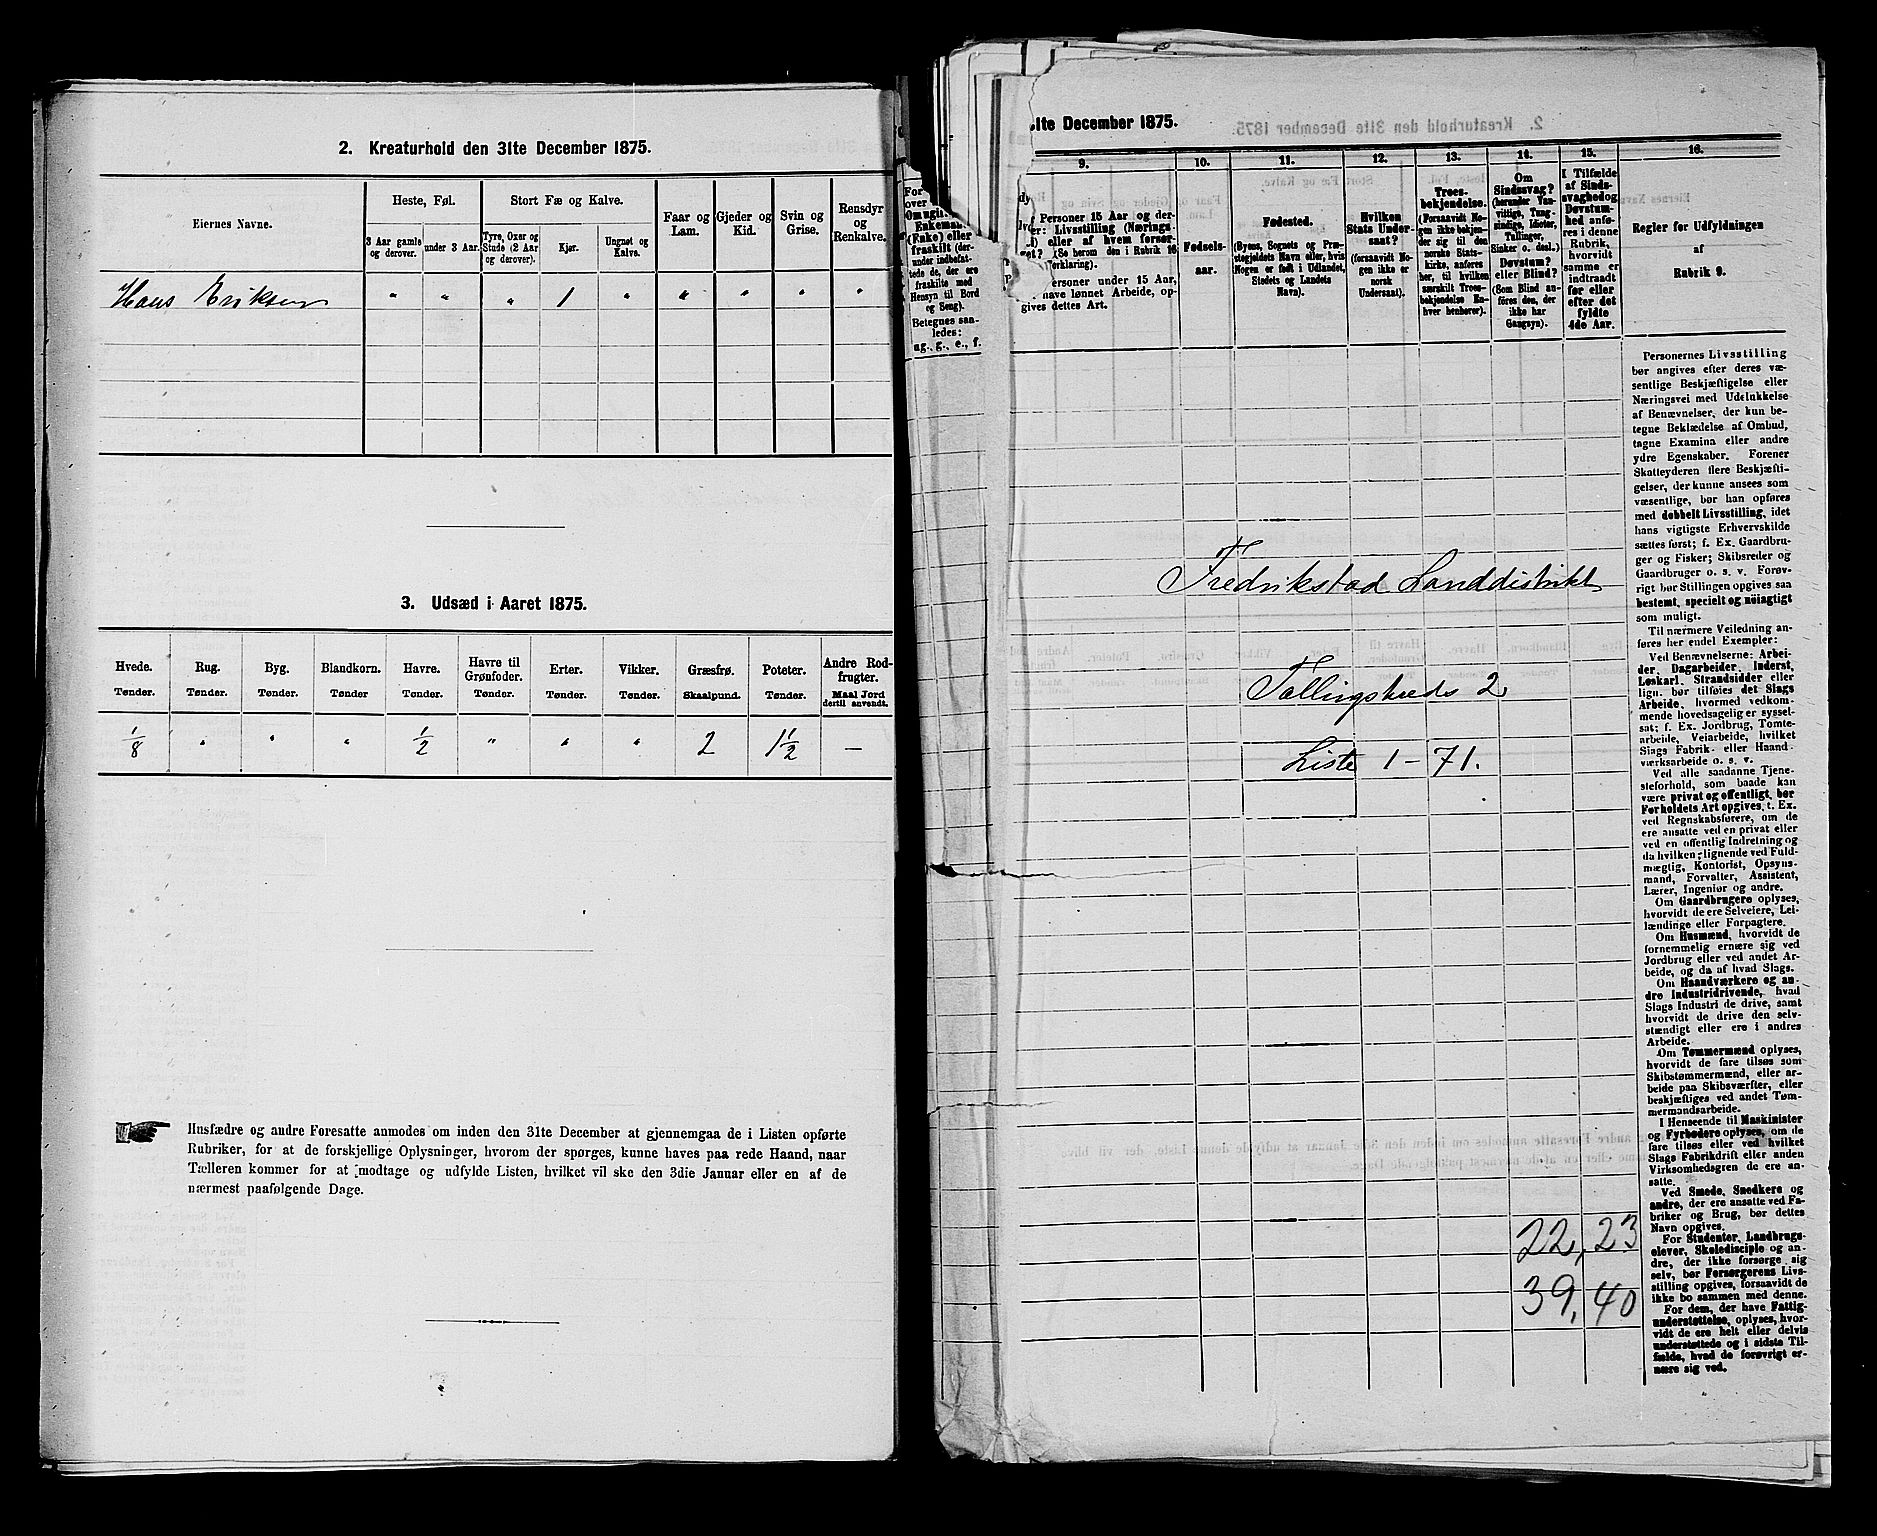 2. Kreaturhold den 31te December 1875.
Eiernes Navne.
Heste, Føl.
Stort Fæ og Kalve.
Faar og Lam.
Gjeder og Kid.
Svin og Grise.
Rensdyr og Renkalve.
3 Aar gamle og derover.
under 3 Aar.
Tyre, Oxer og Stude (2 Aar og derover).
Kjør.
Ungnøt og Kalve.
Hans Eriksen " " " 1 " " " " "
3. Udsæd i Aaret 1875.
Hvede. Rug. Byg. Blandkorn. Havre. Havre til Grønfoder. Erter. Vikker. Græsfrø. Poteter. Andre Rodfrugter.
Tønder. Tønder. Tønder. Tønder Tønder. Tønder. Tønder. Tønder. Skaalpund. Tønder. Maal Jord dertil anvendt.
1/8 " " " 1/2 " " " 2 1 1/2 —
Husfædre og andre Foresatte anmodes om inden den 31te December at gjennemgaa de i Listen opførte
Rubriker, for at de forskjellige Oplysninger, hvorom der spørges, kunne haves paa rede Haand, naar
Tælleren kommer for at modtage og udfylde Listen, hvilket vil ske den 3die Januar eller en af de
nærmest paafølgende Dage.
31te December 1875.
9. 10. 11. 12. 13. 14. 15. 16.
Betegnes saaledes:
ug., g., e., f.
Personer 15 Aar og der-
Livsstilling (Nærings-
eller af hvem forsør-
(Se herom den i Rubrik 16
ersoner under 15 Aar,
have lønnet Arbeide, op-
gives dettes Art.
Fødsels-
aar.
Fødested.
(Byens, Sognets og Præ-
stegjeldets Navn eller, hvis
Nogen er født i Udlandet,
Stedets og Landets
Navn).
Hvilken
Stats Under-
saat?
(forsaavidt No-
gen ikke er
norsk
Undersaat).
Troes-
bekjendelse.
(Forsaavidt No-
gen ikke bekjen-
der sig til den
norske Stats-
kirke, anføres
her, til hvilken
særskilt Troes-
bekjendelse En-
hver henhører).
Om
Sindssvag?
(herunder Van-
vittige, Tung-
sindige, Idioter,
Tullinger,
Sinker o. desl.)
Døvstum?
eller Blind?
(Som Blind an-
føres den, der
ikke har
Gangsyn).
I Tilfælde
af Sinds-
svaghed og
Døvstum-
hed anfø-
res i denne
Rubrik,
hvorvidt
samme er
indtraadt
før eller
efter det
fyldte
4de Aar.
Regler for Udfyldningen
af
Rubrik 9.
Fredrikstad Landdistrikt
Tællingskreds 2
Liste 1 - 71.
22, 23
39, 40
Personernes Livsstilling
bør angives efter deres væ-
sentlige Beskjæftigelse eller
Næringsvei med Udelukkelse
af Benævnelser, der kun be-
tegne Beklædelse af Ombud,
tagne Examina eller andre
ydre Egenskaber. Forener
Skatteyderen flere Beskjæfti-
gelser, der kunne ansees som
væsentlige, bør han opføres
med dobbelt Livsstilling, idet
hans vigtigste Erhvervskilde
sættes først; f. Ex. Gaardbru-
ger og Fisker; Skibsreder og
Gaardbruger o. s. v. Forøv-
rigt bør Stillingen opgives saa
bestemt, specielt og nøiagtigt
som muligt.
Til nærmere Veiledning an-
føres her endel Exempler:
Ved Benævnelserne: Arbei-
der, Dagarbeider, Inderst,
Løskarl, Strandsidder eller
lign. bør tilføies det Slags
Arbeide, hvormed vedkom-
mende hovedsagelig er syssel-
sat; f. Ex. Jordbrug, Tomte-
arbeide, Veiarbeide, hvilket
Slags Fabrik- eller Haand-
værksarbeide o. s. v.
Ved alle saadanne Tjene-
steforhold, som baade kan
være privat og offentligt, bør
Forholdets Art opgives, t. Ex.
ved Regnskabsførere, om de
ere ansatte ved en privat eller
ved en offentlig Indretning og
da hvilken; lignende ved Fuld-
mægtig, Kontorist, Opsyns-
mand, Forvalter, Assistent,
Lærer, Ingeniør og andre.
Om Gaardbrugere oplyses,
hvorvidt de ere Selveiere, Lei-
lændinge eller Forpagtere.
Om Husmænd, hvorvidt de
fornemmelig ernære sig ved
Jordbrug eller ved andet Ar-
beide, og da af hvad Slags.
Om Haandværkere og an-
dre Industridrivende, hvad
Slags Industri de drive, samt
hvorvidt de drive den selv-
stændigt eller ere i andres
Arbeide.
Om Tømmermænd oplyses,
hvorvidt de fare tilsøs som
Skibstømmermænd, eller ar-
beide paa Skibsværfter, eller
beskjæftiges ved andet Tøm-
mermandsarbeide.
I Henseende til Maskinister
og Fyrbødere oplyses, om de
fare tilsøs eller ved hvilket
Slags Fabrikdrift eller anden
Virksomhedsgren de ere an-
satte.
Ved Smede, Snedkere og
andre, der ere ansatte ved Fa-
briker og Brug, bør dettes
Navn opgives.
For Studenter, Landbrugs-
elever, Skoledisciple og an-
dre, der ikke forsørge sig
selv, bør Forsørgerens Livs-
stilling opgives, forsaavidt de
ikke bo sammen med denne.
For dem, der have Fattig-
understøttelse, oplyses, hvor-
vidt de ere helt eller delvis
understøttede og i sidste Til-
fælde, hvad de forøvrigt er-
nære sig ved.